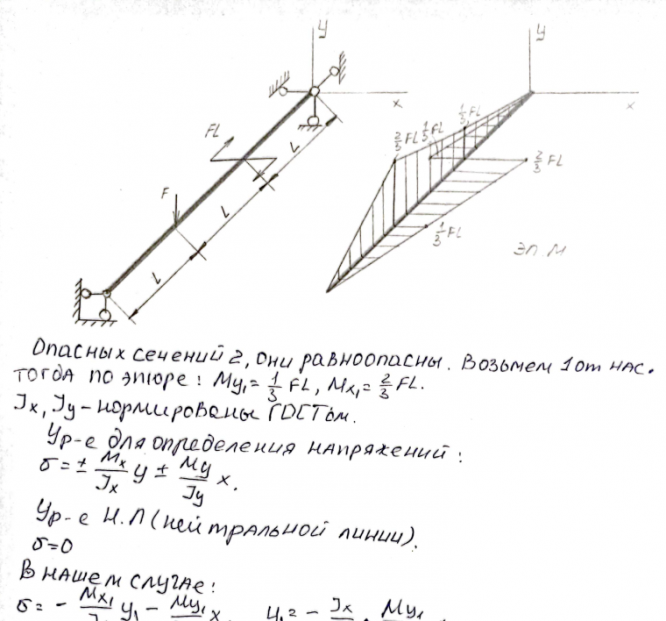 y
y
x
x
FL
L
F
L
L
2/3 FL 1/3 FL
1/3 FL
2/3 FL
1/3 FL
ЭП. М
Опасных сечений 2, они равноопасны. Возьмем 1 от нас.
тогда по эпюре: My₁ = 1/3 FL, Mx₁ = 2/3 FL.
Jx, Jy - нормированы ГОСТом.
Ур-е для определения напряжений:
σ = ± Mx/Jx y ± My/Jy x.
Ур-е Н.Л (нейтральной линии).
σ=0
В нашем случае:
σ = - Mx₁ y₁ - My₁ x y₁ = - Jx · My₁